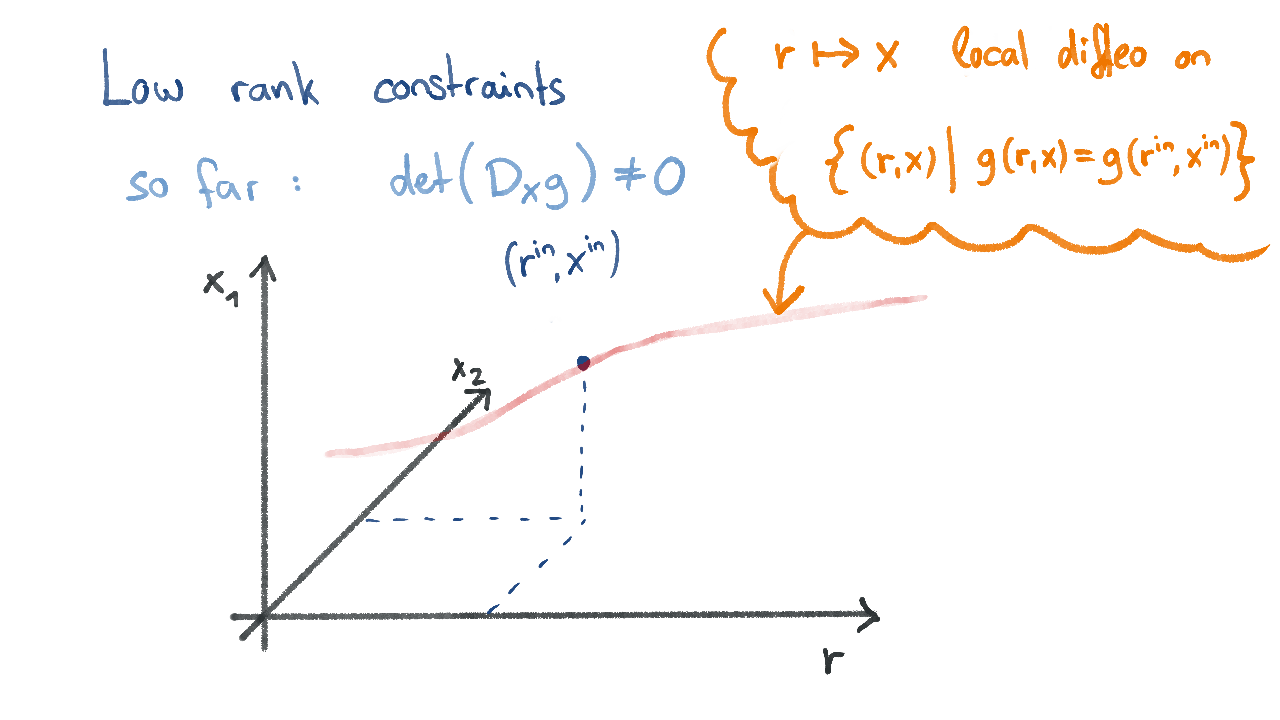 Low rank constraints
so far : det(Dₓg) ≠ 0
r ↦ x local diffeo on
{(r,x) | g(r,x) = g(rⁱⁿ, xⁱⁿ)}
(rⁱⁿ, xⁱⁿ)
x₁
x₂
r